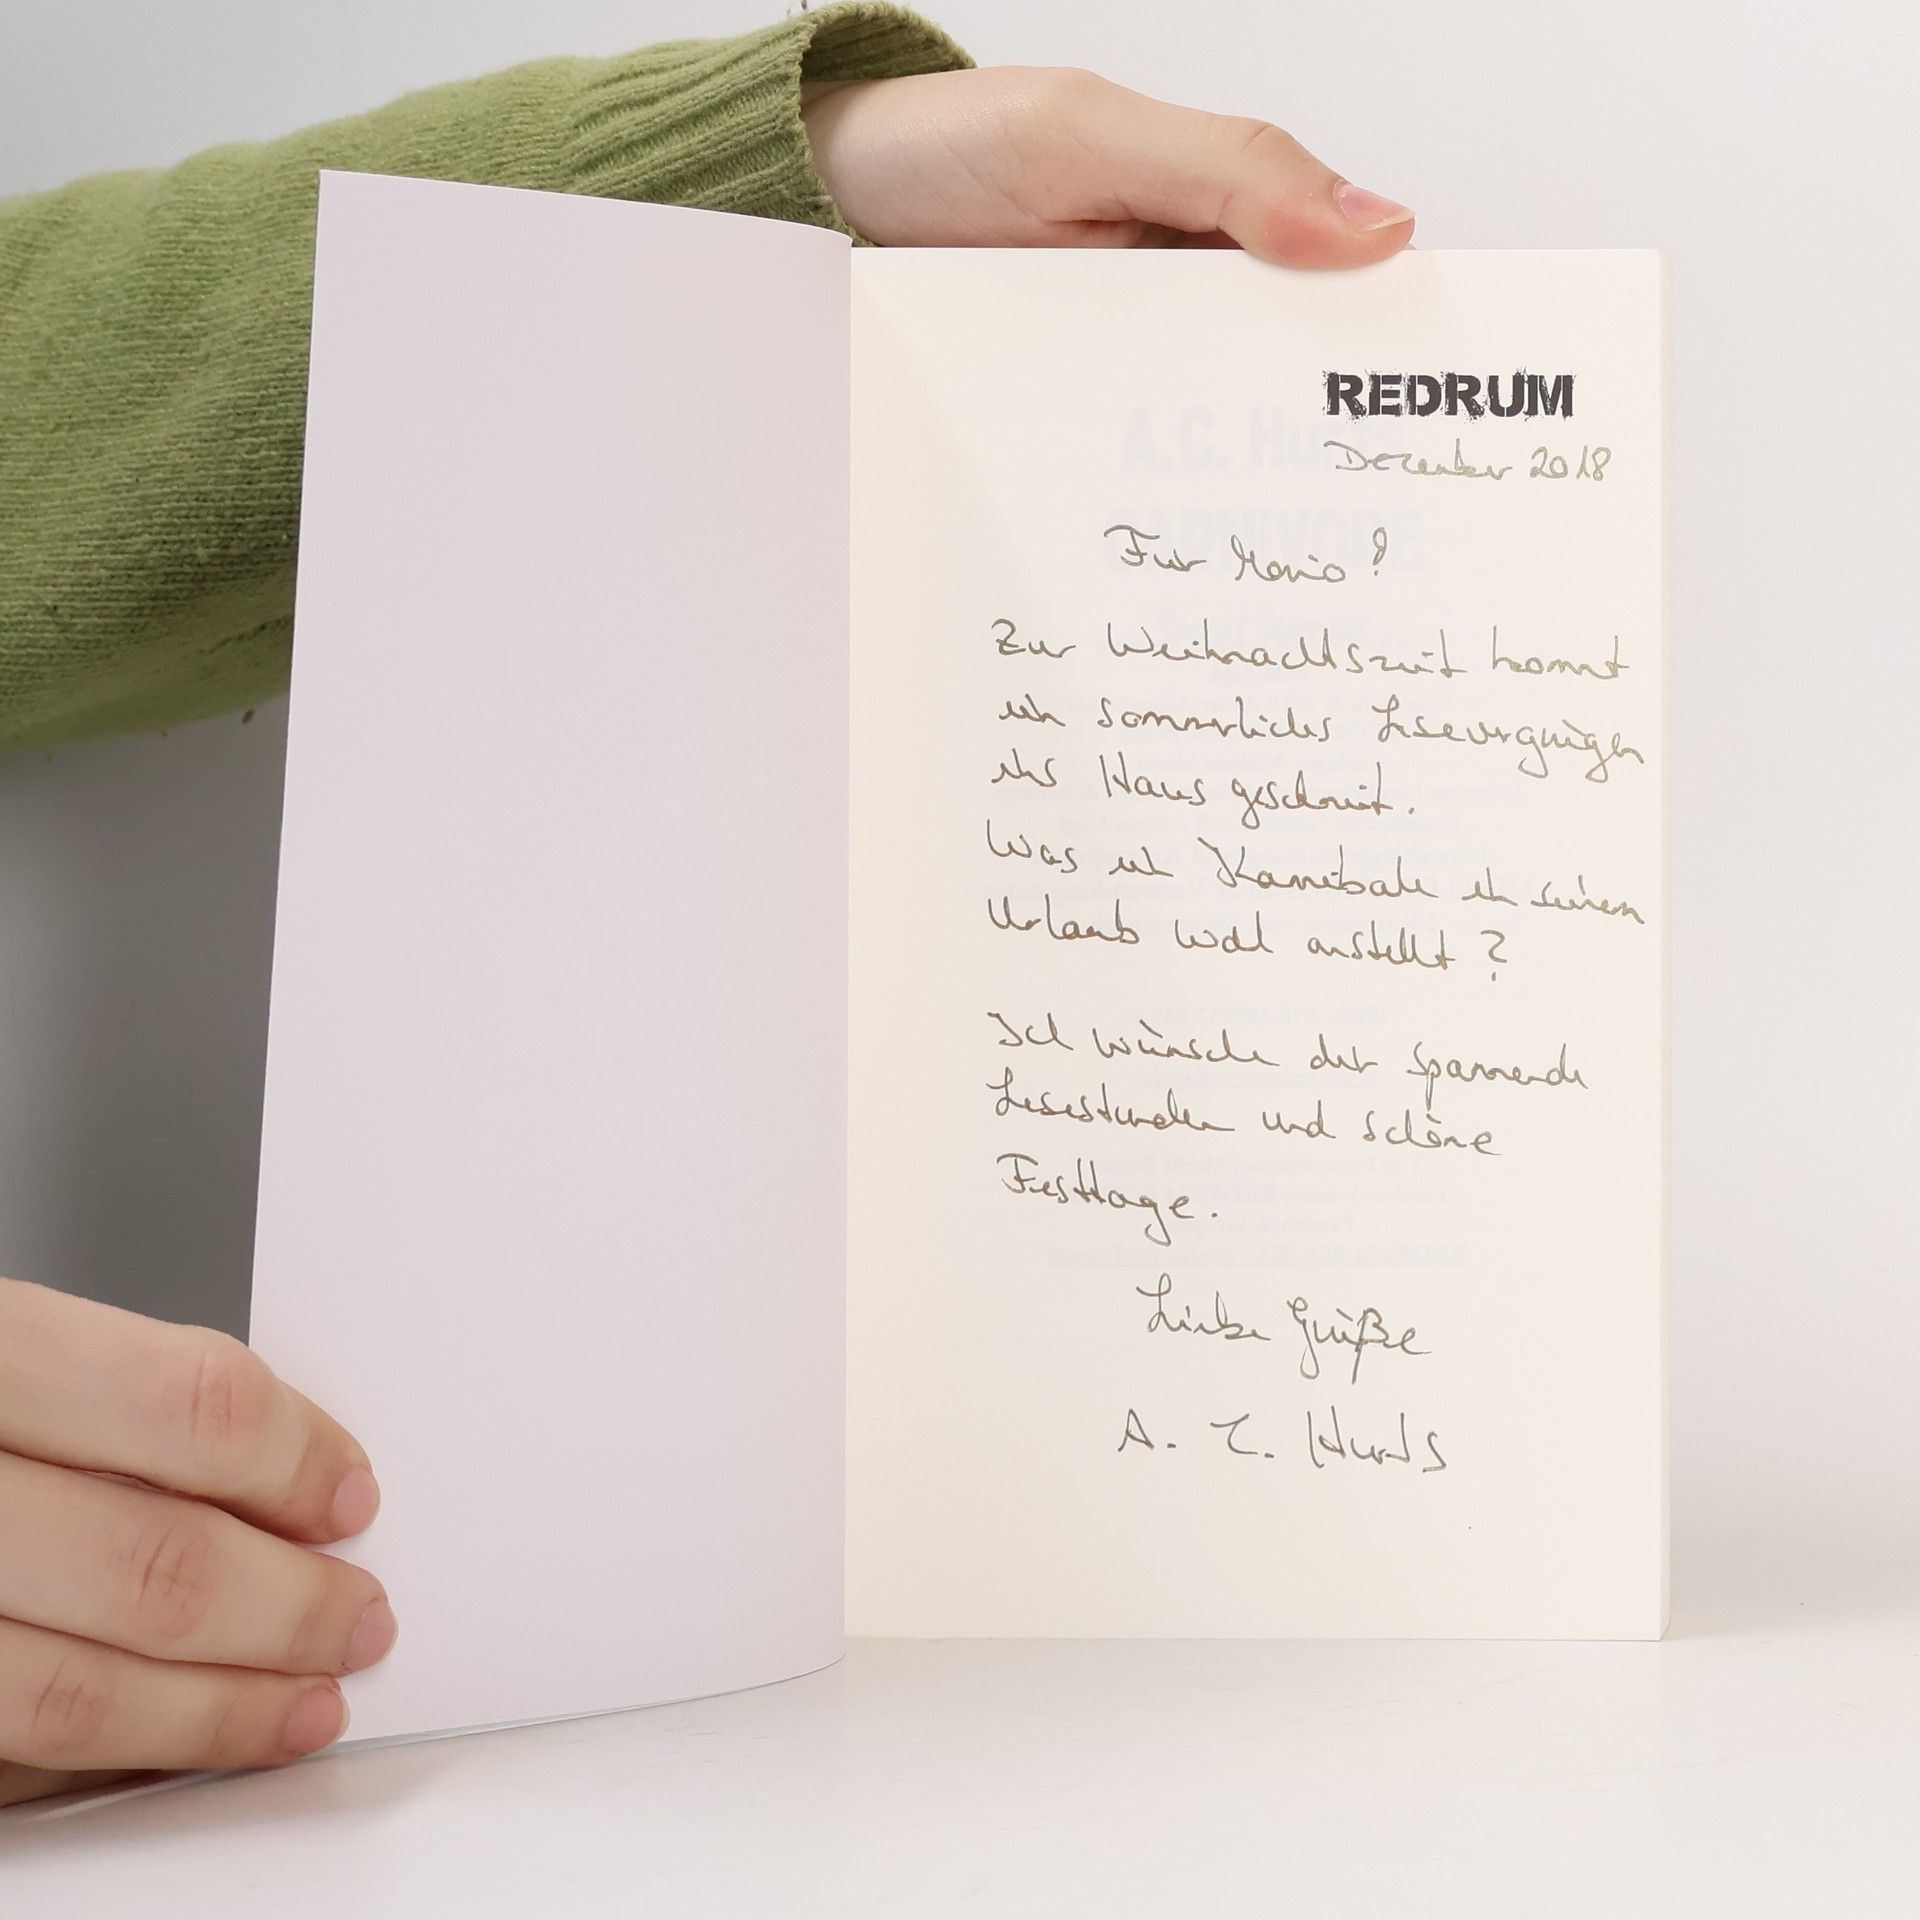 REDRUM
Dezember 2018
Für Mario!
Zur Weihnachtszeit kommt
ein sommerliches Lesevergnügen
ins Haus geschneit.
Was ein Kannibale in seinem
Urlaub wohl anstellt?
Ich wünsche dir spannende
Lesestunden und schöne
Festtage.
Liebe Grüße
A. C. Hurts
A.C. Hurts
CARNIVORE